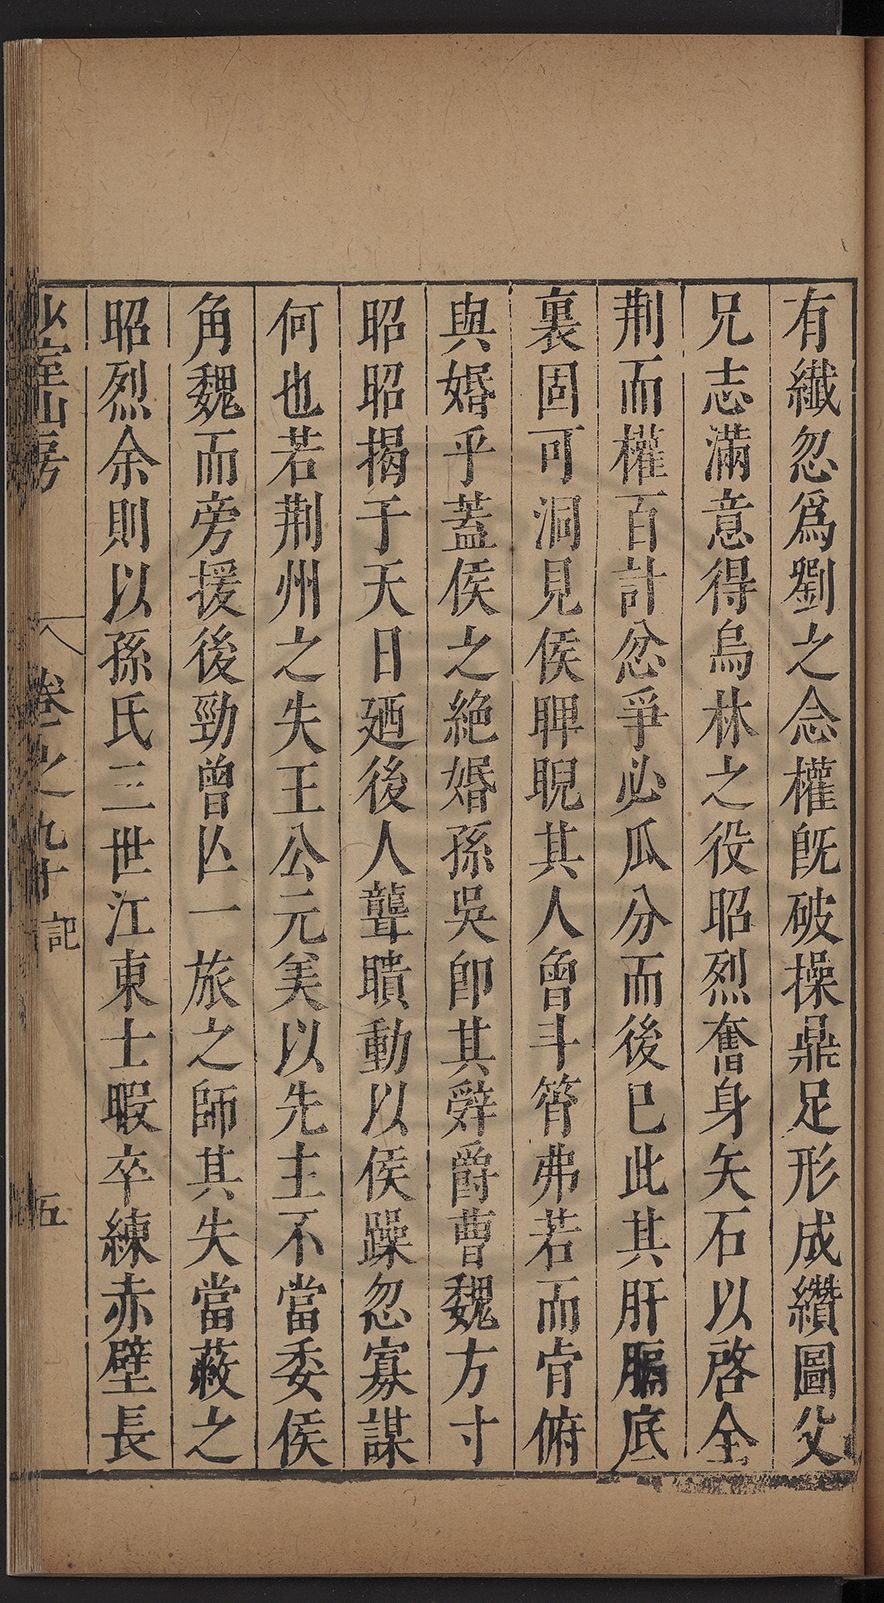 有纖忽爲劉之念權旣破操鼎足形成纘圖父
兄志滿意得烏林之役昭烈奮身矢石以啓全
荆而權百計忿爭必瓜分而後已此其肝膈底
裏固可洞見侯睥睨其人曾斗筲弗若而肯俯
與婚乎蓋侯之絶婚孫吳卽其辤爵曹魏方寸
昭昭揭于天日廼後人聾聵動以侯躁忽寡謀
何也若荆州之失王公元美以先主不當委侯
角魏而旁援後勁曾亾一旅之師其失當蔽之
昭烈余則以孫氏三世江東士暇卒練赤壁長
少室山房
卷之九十 記
五